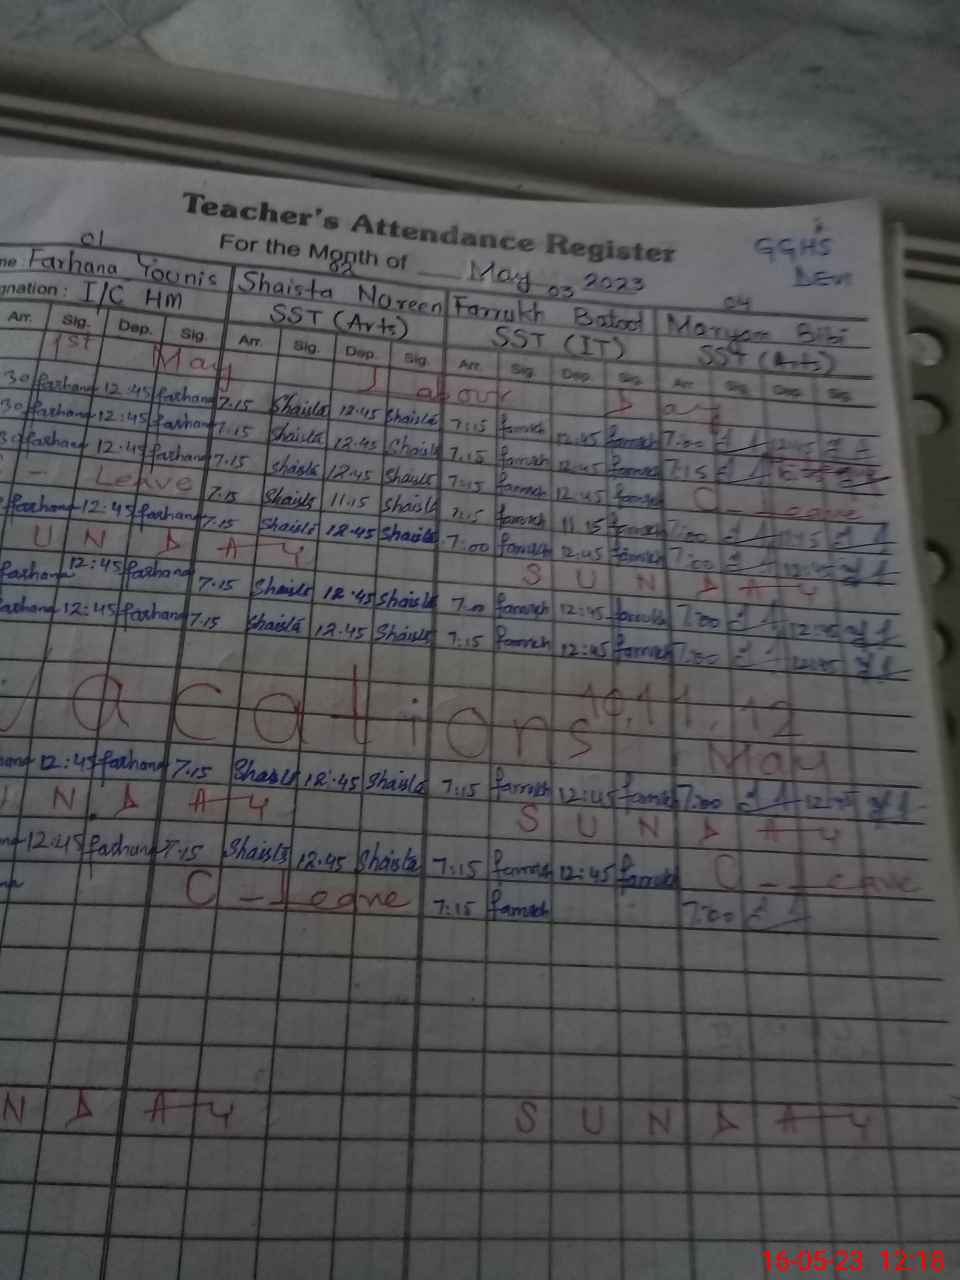 Teacher's Attendance Register
GGHS
For the Month of May 2023
01 02 03 04
me: Farhana Younis Shaista Nareen Farrukh Batool Maryam Bibi
gnation: I/C HM SST (Arts) SST (IT) SST (Arts)
Arr. Sig. Dep. Sig. Arr. Sig. Dep. Sig. Arr. Sig. Dep. Sig. Arr. Sig. Dep. Sig.
1st May Labour Day
30 farhana 12:45 farhana 7.15 Shaista 12.45 Shaista 7:15 farrukh 12:45 farrukh 7:00 12:45
30 farhana 12:45 farhana 7.15 Shaista 12.45 Shaista 7:15 farrukh 12:45 farrukh 7:15
30 farhana 12:45 farhana 7.15 Shaista 12.45 Shaista 7:15 farrukh 12:45 farrukh C-Leave
- Leave 7.15 Shaista 11.15 Shaista 7:15 farrukh 11:15 farrukh 7:00 11:15
farhana 12:45 farhana 7.15 Shaista 12.45 Shaista 7:00 farrukh 12:45 farrukh 7:00 12:45
UNDAY SUNDAY
farhana 12:45 farhana 7.15 Shaista 12.45 Shaista 7:00 farrukh 12:45 farrukh 7:00 12:45
farhana 12:45 farhana 7.15 Shaista 12.45 Shaista 7:15 farrukh 12:45 farrukh 7:00 12:45
Vacations 10,11,12
May
hana 12:45 farhana 7.15 Shaista 12.45 Shaista 7:15 farrukh 12:45 farrukh 7:00 12:45
UNDAY SUNDAY
na 12:45 farhana 7.15 Shaista 12.45 Shaista 7:15 farrukh 12:45 farrukh C-Leave
na C-Leave 7:15 farrukh 7:00
NDAY SUNDAY
16-05-23 12:18